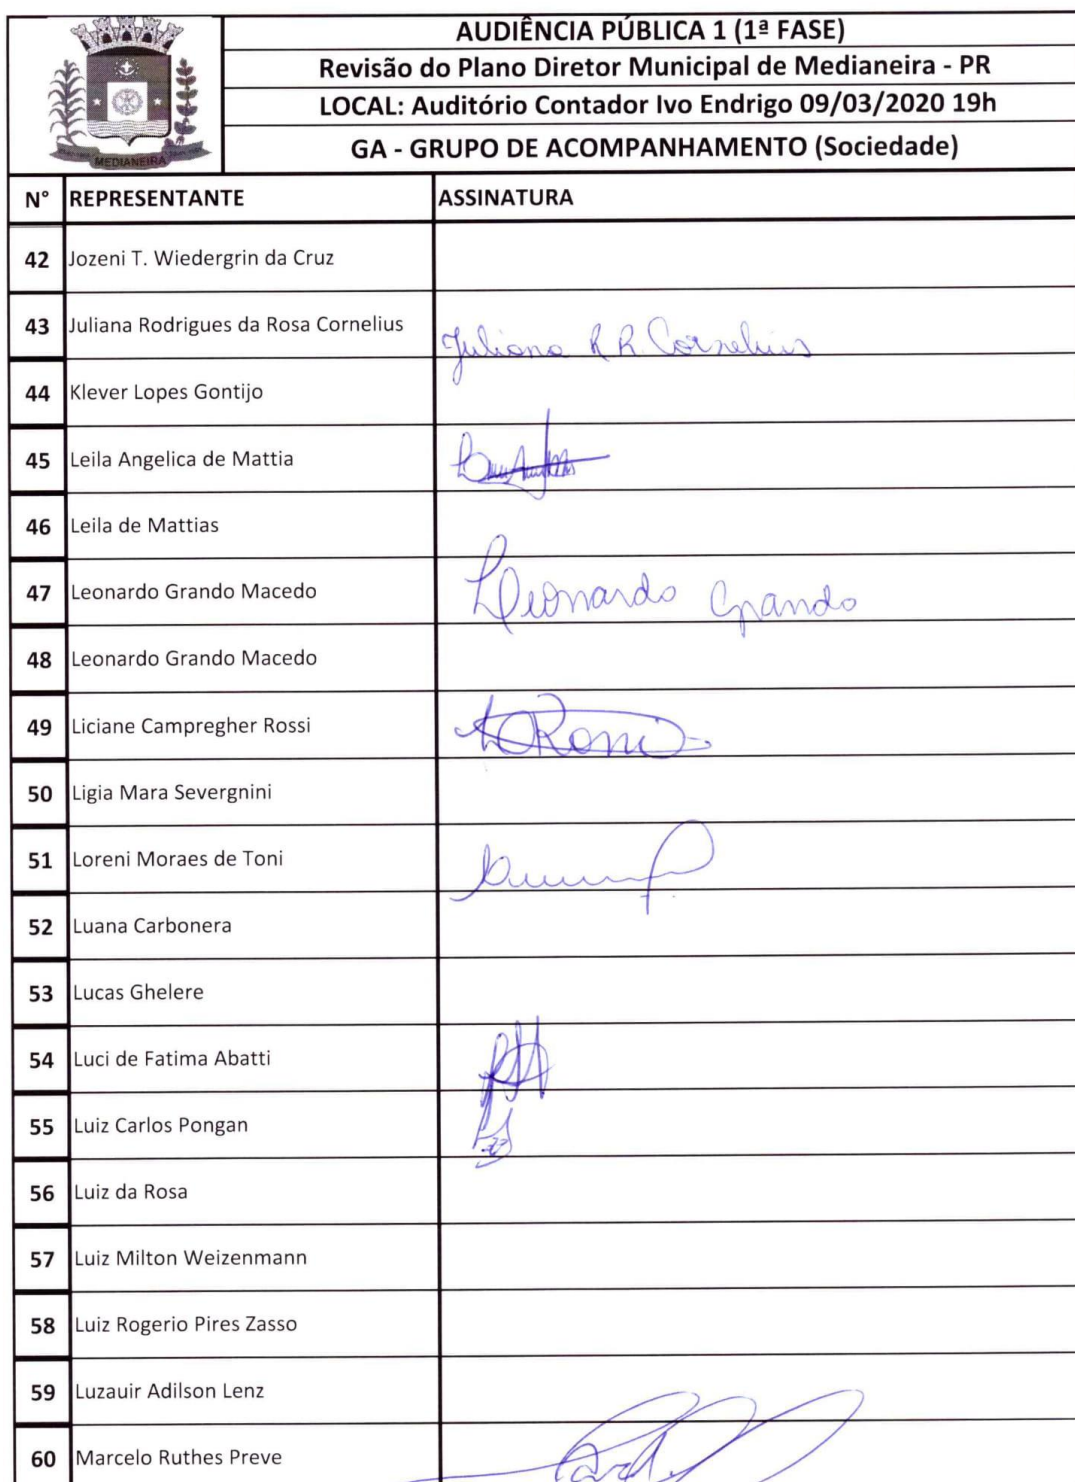 AUDIÊNCIA PÚBLICA 1 (1ª FASE)
Revisão do Plano Diretor Municipal de Medianeira - PR
LOCAL: Auditório Contador Ivo Endrigo 09/03/2020 19h
GA - GRUPO DE ACOMPANHAMENTO (Sociedade)
MEDIANEIRA
N° REPRESENTANTE ASSINATURA
42 Jozeni T. Wiedergrin da Cruz
43 Juliana Rodrigues da Rosa Cornelius Juliana R R Cornelius
44 Klever Lopes Gontijo
45 Leila Angelica de Mattia
46 Leila de Mattias
47 Leonardo Grando Macedo Leonardo Grando
48 Leonardo Grando Macedo
49 Liciane Campregher Rossi
50 Ligia Mara Severgnini
51 Loreni Moraes de Toni
52 Luana Carbonera
53 Lucas Ghelere
54 Luci de Fatima Abatti
55 Luiz Carlos Pongan
56 Luiz da Rosa
57 Luiz Milton Weizenmann
58 Luiz Rogerio Pires Zasso
59 Luzauir Adilson Lenz
60 Marcelo Ruthes Preve